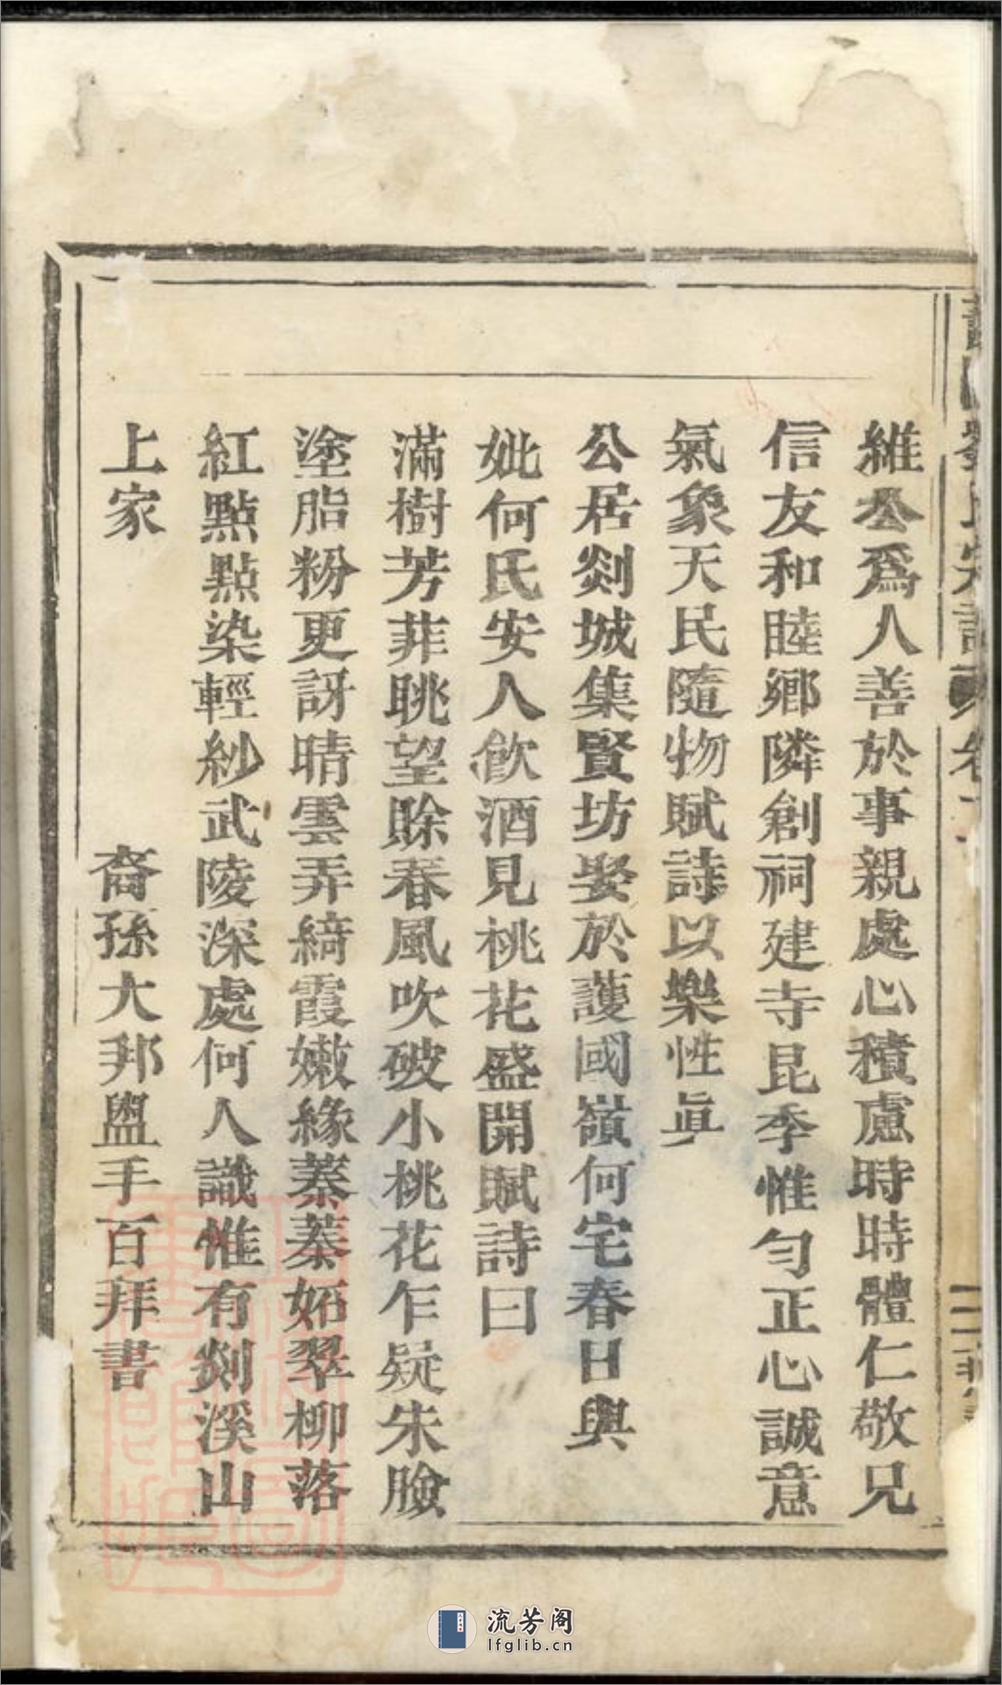 維公爲人善於事親處心積慮時時體仁敬兄
信友和睦鄉隣創祠建寺昆季惟勻正心誠意
氣象天民隨物賦詩以樂性眞
公居剡城集賢坊娶於護國嶺何宅春日與
妣何氏安人飲酒見桃花盛開賦詩曰
滿樹芳菲眺望賒春風吹破小桃花乍疑朱臉
塗脂粉更訝晴雲弄綺霞嫩緣蓁蓁妬翠柳落
紅點點染輕紗武陵深處何人識惟有剡溪山
上家
裔孫大邦盥手百拜書
流芳阁
lfglib.cn